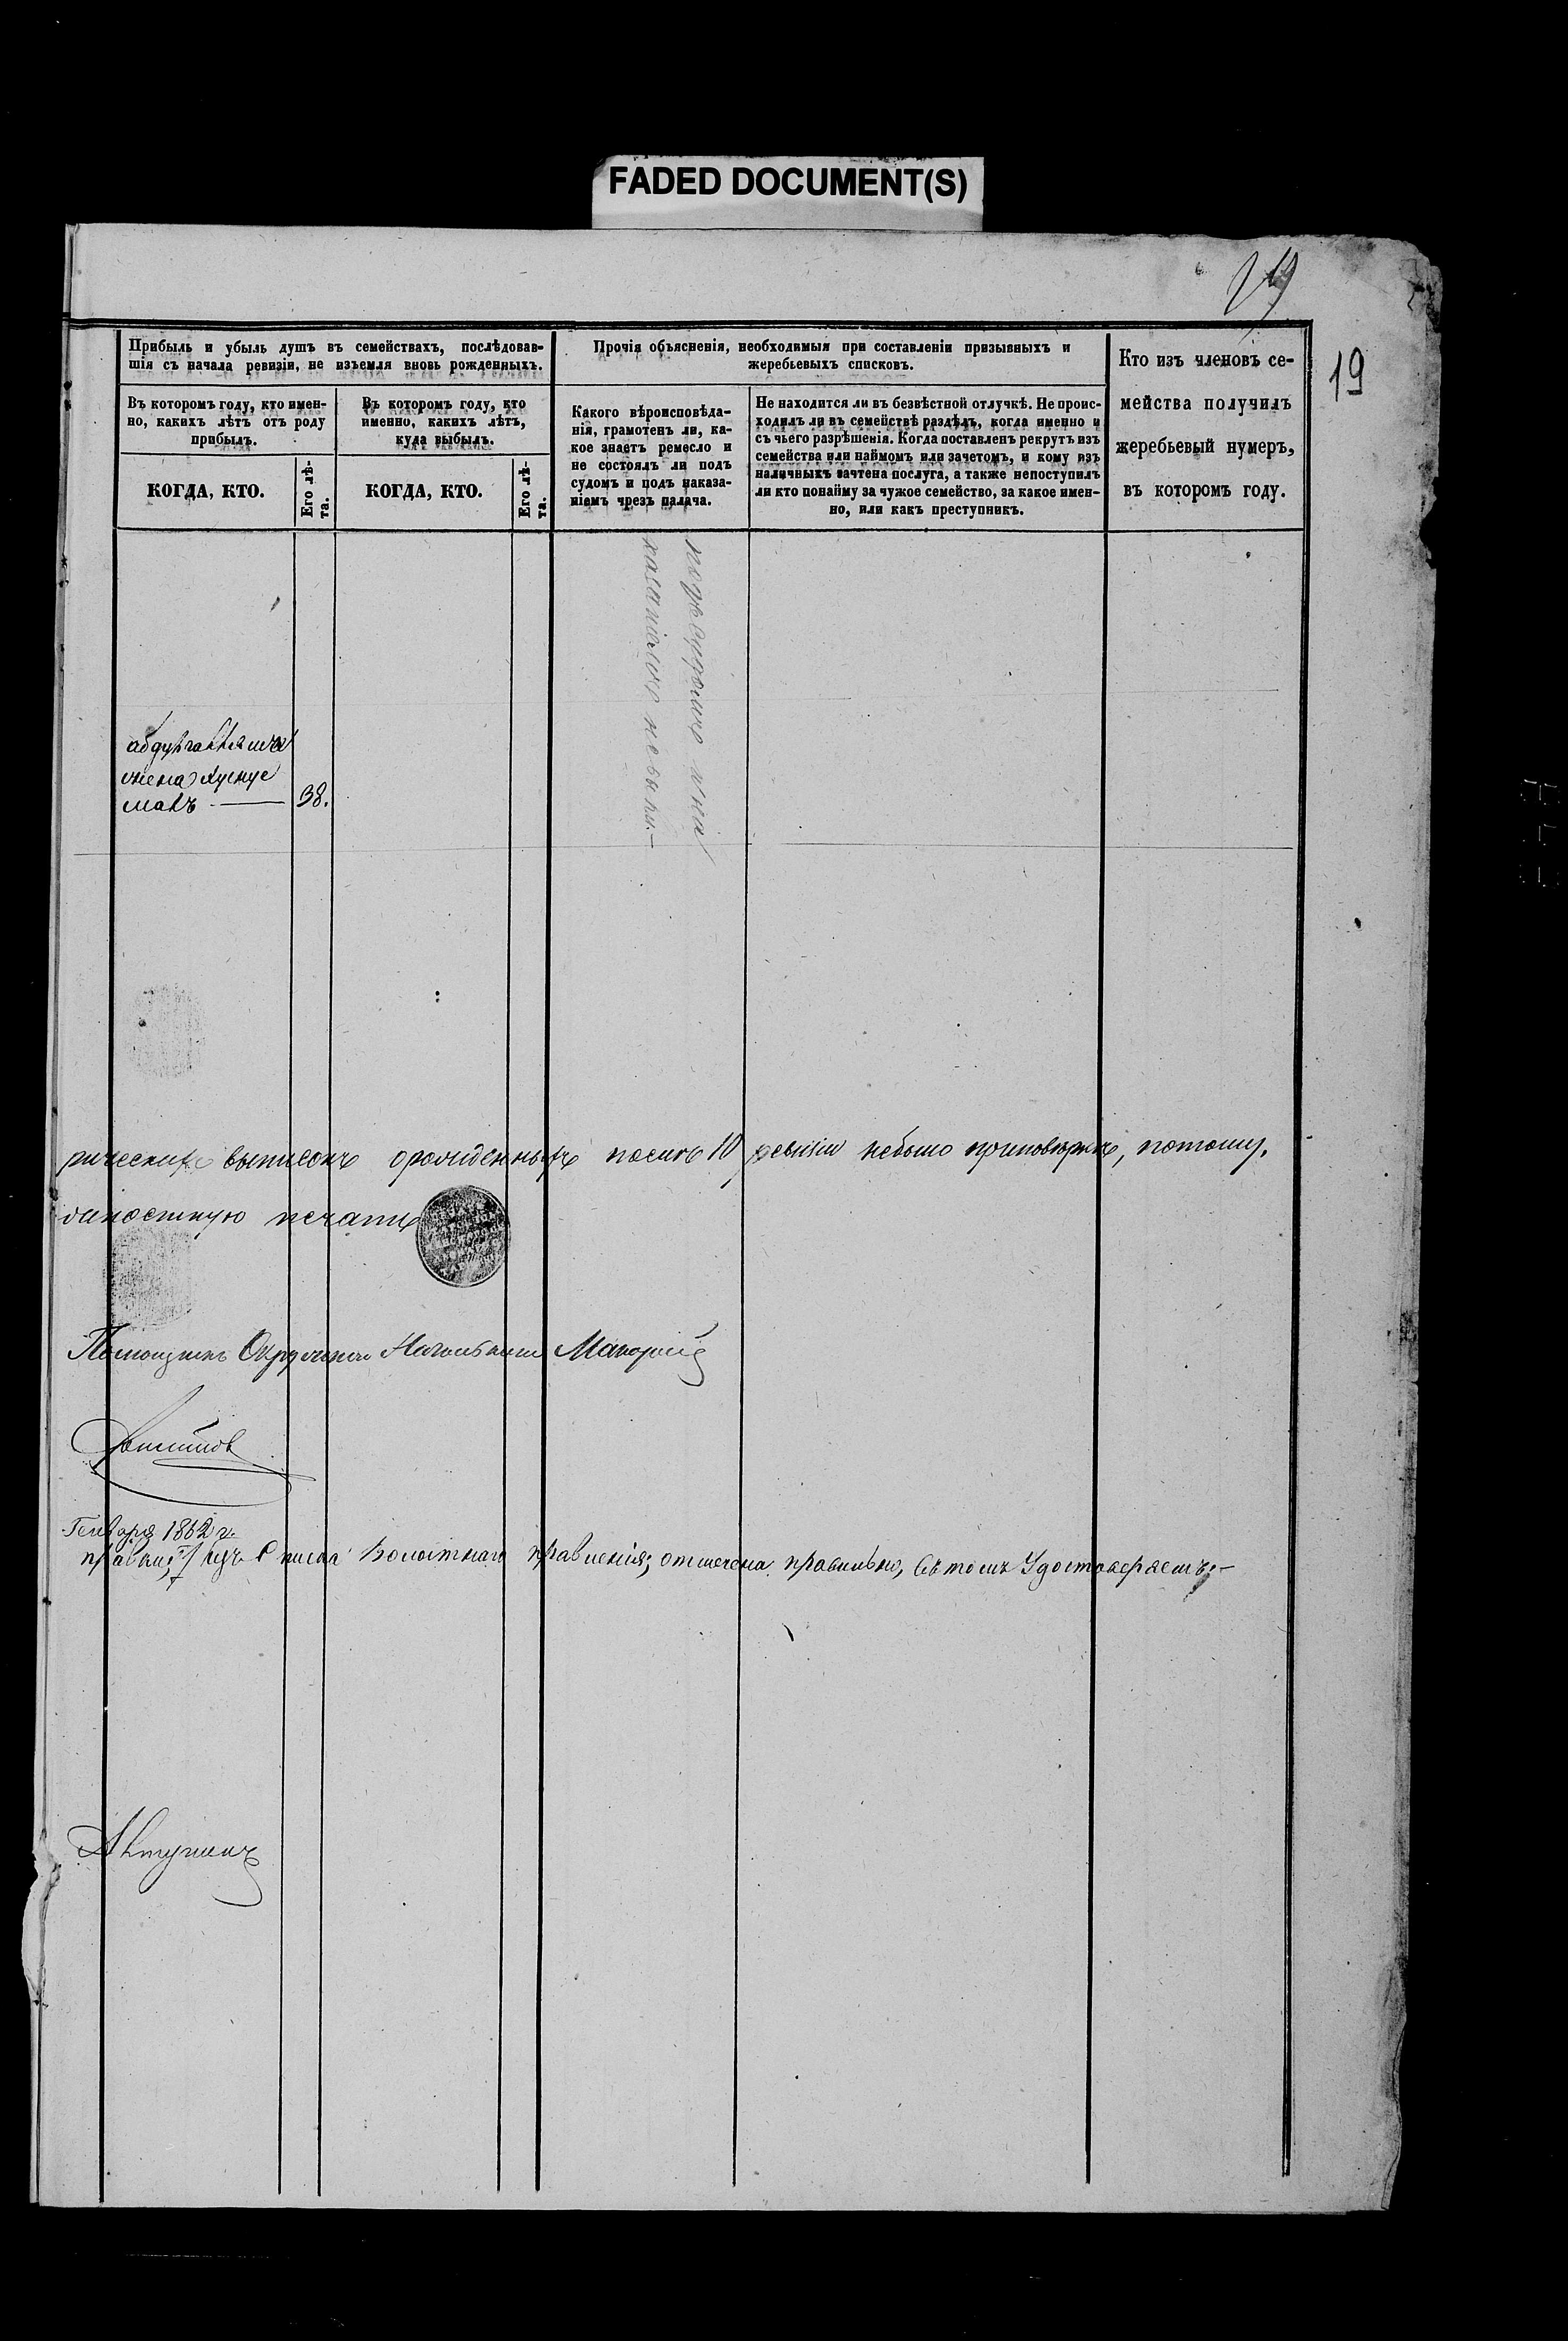 FADED DOCUMENT(S)
19
Прибыль и убыль душъ въ семействахъ, послѣдовав-
шія съ начала ревизіи, не изъемля вновь рожденныхъ.
Прочія объясненія, необходимыя при составленіи призывныхъ и
жеребьевыхъ списковъ.
Кто изъ членовъ се-
мейства получилъ
жеребьевый нумеръ,
въ которомъ году.
Въ которомъ году, кто имен-
но, какихъ лѣтъ отъ роду
прибылъ.
Въ которомъ году, кто
именно, какихъ лѣтъ,
куда выбылъ.
Какого вѣроисповѣда-
нія, грамотенъ ли, ка-
кое знаетъ ремесло и
не состоялъ ли подъ
судомъ и подъ наказа-
ніемъ чрезъ палача.
Не находится ли въ безвѣстной отлучкѣ. Не проис-
ходилъ ли въ семействѣ раздѣлъ, когда именно и
съ чьего разрѣшенія. Когда поставленъ рекрутъ изъ
семейства или наймомъ или зачетомъ, и кому изъ
наличныхъ зачтена послуга, а также непоступилъ
ли кто понайму за чужое семейство, за какое имен-
но, или какъ преступникъ.
КОГДА, КТО.
Его лѣ-
та.
КОГДА, КТО.
Его лѣ-
та.
жена
38.
рическихъ выписокъ орожденныхъ послѣ 10 ревизіи небыло потому,
печать
Помощникъ Окружнаго Начальника
Генваря 1862 г.
Волостнаго правленія; отмечена правильно, въ томъ Удостоверяемъ.-